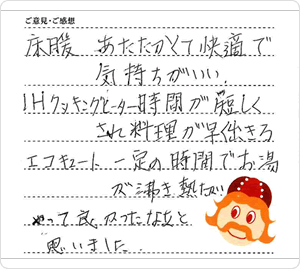 ご意見・ご感想
床暖 あたたかくて快適で
気持ちがいい.
IHクッキングヒーター時間が短しく
され料理が早く出きる
エコキュート 一定の時間でお湯
が沸き熱だい
やって良かったなぁと
思いました.